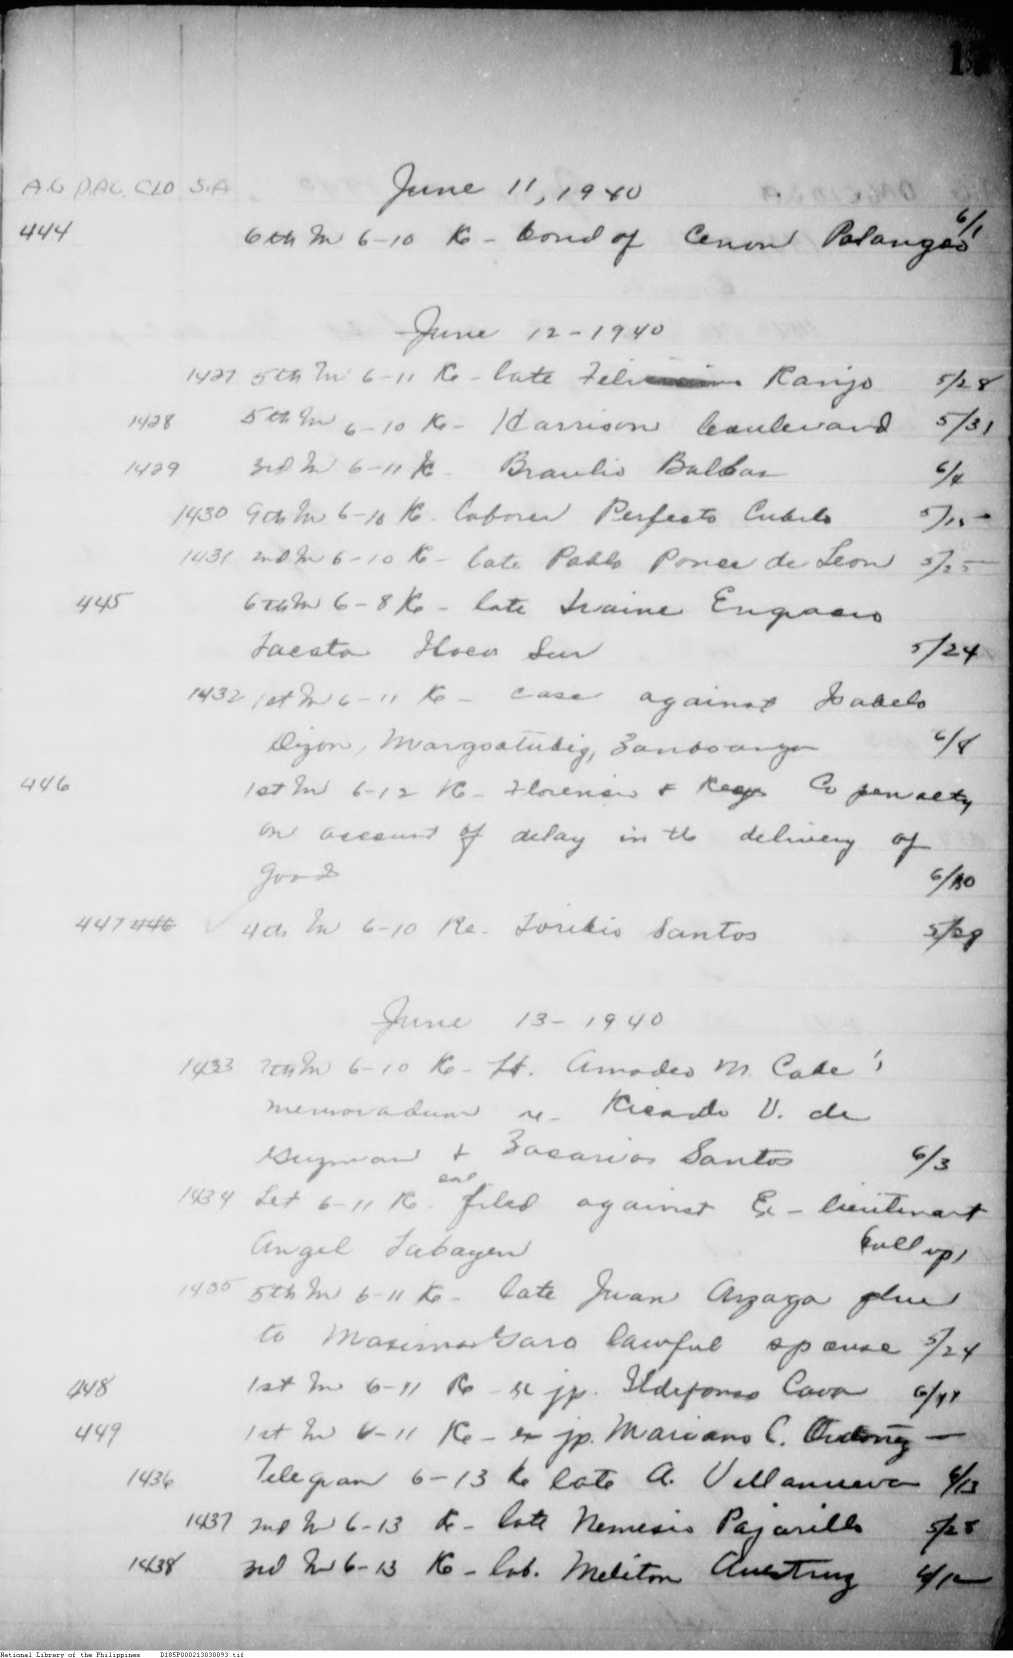 A.G D.AG. CLD S.A June 11, 1940
444 6th In 6-10 Re - bond of Cenon Palangeo 6/1
June 12-1940
1427 5th In 6-11 Re - late Ranjo 5/28
1428 5th In 6-10 Re - Harrison boulevard 5/31
1429 3rd In 6-11 Re - Braulio Balbas 6/4
1430 9th In 6-10 Re. laborer Perfecto 5/15-
1431 2nd In 6-10 Re - late Pablo Ponce de Leon 5/25-
445 6th In 6-8 Re - late
Ilocos Sur 5/24
1432 1st In 6-11 Re - case against Isabelo
Dizon, Margosatubig, Zamboanga 6/8
446 1st In 6-12 Re - & Co penalty
on account of delay in the delivery of
goods 6/10
447 446 4th In 6-10 Re. Toribio Santos 5/29
June 13-1940
1433 7th In 6-10 Re - Lt. Amadeo M. Cabe's
memoradum re - Ricardo V. de
Guzman & Zacarias Santos 6/3
1434 Let 6-11 Re. filed against Ex-lieutenant
Angel Tabayen
1435 5th In 6-11 Re - late Juan Arzaga
to Maxima Garo lawful spouse 5/24
448 1st In 6-11 Re - ex jp. Ildefonso Cava
449 1st In 6-11 Re - ex jp. Mariano C. Ordoñez -
1436 Telegram 6-13 Re late A. Villanueva 6/13
1437 2nd In 6-13 Re - late Nemesio Pajarillo 5/28
1438 3rd In 6-13 Re - lab. Meliton 6/12
National Library of the Philippines D185P000213030093.tif